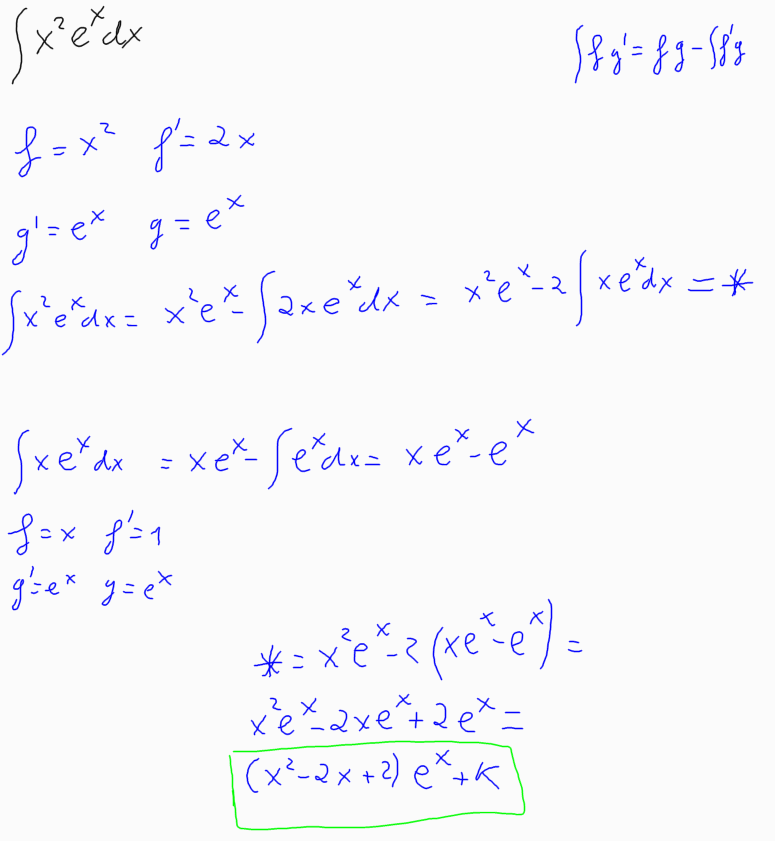 ∫x²eˣdx
∫fg'=fg-∫f'g
f=x² f'=2x
g'=eˣ g=eˣ
∫x²eˣdx= x²eˣ-∫2xeˣdx = x²eˣ-2∫xeˣdx =*
∫xeˣdx =xeˣ-∫eˣdx= xeˣ-eˣ
f=x f'=1
g'=eˣ g=eˣ
*=x²eˣ-2(xeˣ-eˣ)=
x²eˣ-2xeˣ+2eˣ=
(x²-2x+2)eˣ+K